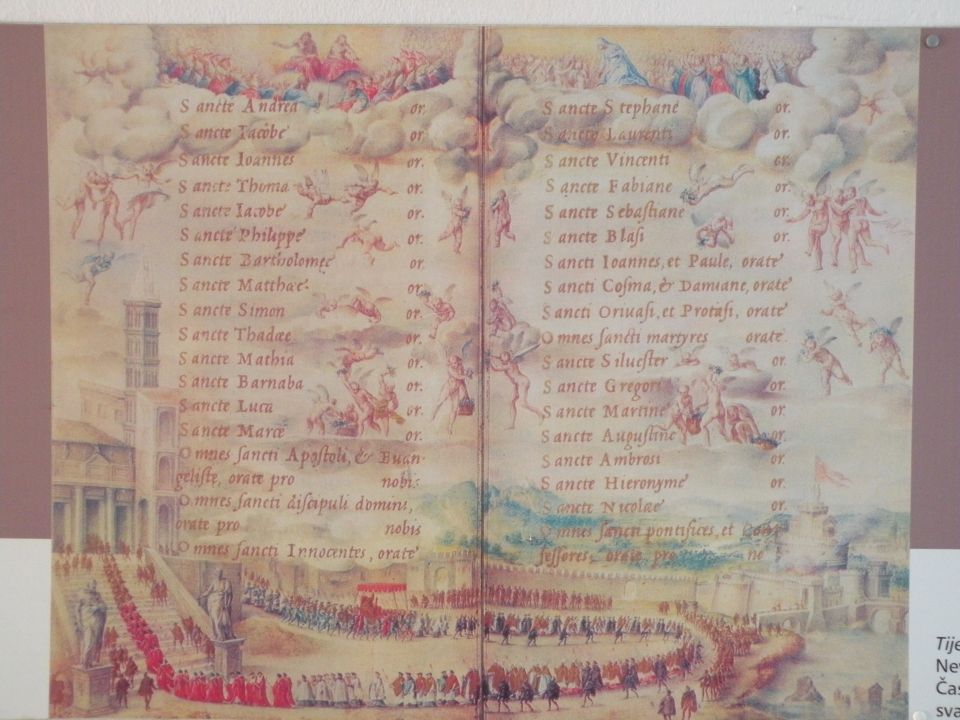 Sancte Andrea or.
Sancte Iacobe or.
Sancte Ioannes or.
Sancte Thoma or.
Sancte Iacobe or.
Sancte Philippe or.
Sancte Bartholomęe or.
Sancte Matthæe or.
Sancte Simon or.
Sancte Thadæe or.
Sancte Mathia or.
Sancte Barnaba or.
Sancte Luca or.
Sancte Marce or.
Omnes sancti Apostoli, & Euan-
geliste, orate pro nobis
Omnes sancti discipuli domini,
orate pro nobis
Omnes sancti Innocentes, orate
Sancte Stephane or.
Sancte Laurenti or.
Sancte Vincenti or.
Sancte Fabiane or.
Sancte Sebastiane or.
Sancte Blasi or.
Sancti Ioannes, et Paule, orate
Sancti Cosma, & Damiane, orate
Sancti Oruasi, et Protasi, orate
Omnes sancti martyres orate.
Sancte Siluester or.
Sancte Gregori or.
Sancte Martine or.
Sancte Augustine or.
Sancte Ambrosi or.
Sancte Hieronyme or.
Sancte Nicolæ or.
Omnes sancti pontifices, et Con-
fessores, orate pro no
Tije
Nev
Čas
sva